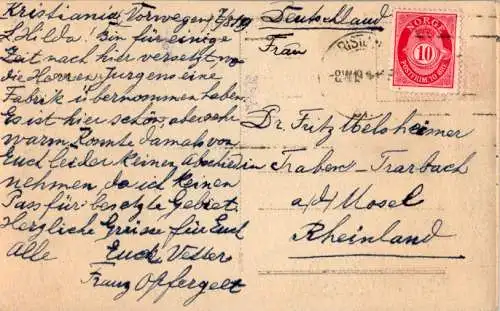 Kristiania, Norwegen 7/8 19
L. Hilda! Bin für einige
Zeit nach hier versetzt wo
die Herren Jurgens eine
Fabrik übernommen haben
Es ist hier schön, aber sehr
warm. Konnte damals von
Euch leider keinen Abschied
nehmen, da ich keinen
Pass für besetzte Gebiet.
Herzliche Grüsse für Euch
Alle Euch Vetter
Franz Opfergelt
Deutschland
Frau
Dr. Fritz Melsheimer
in Traben-Trarbach
a/d Mosel
Rheinland
NORGE
10
POSTFRIM. 10 ØRE